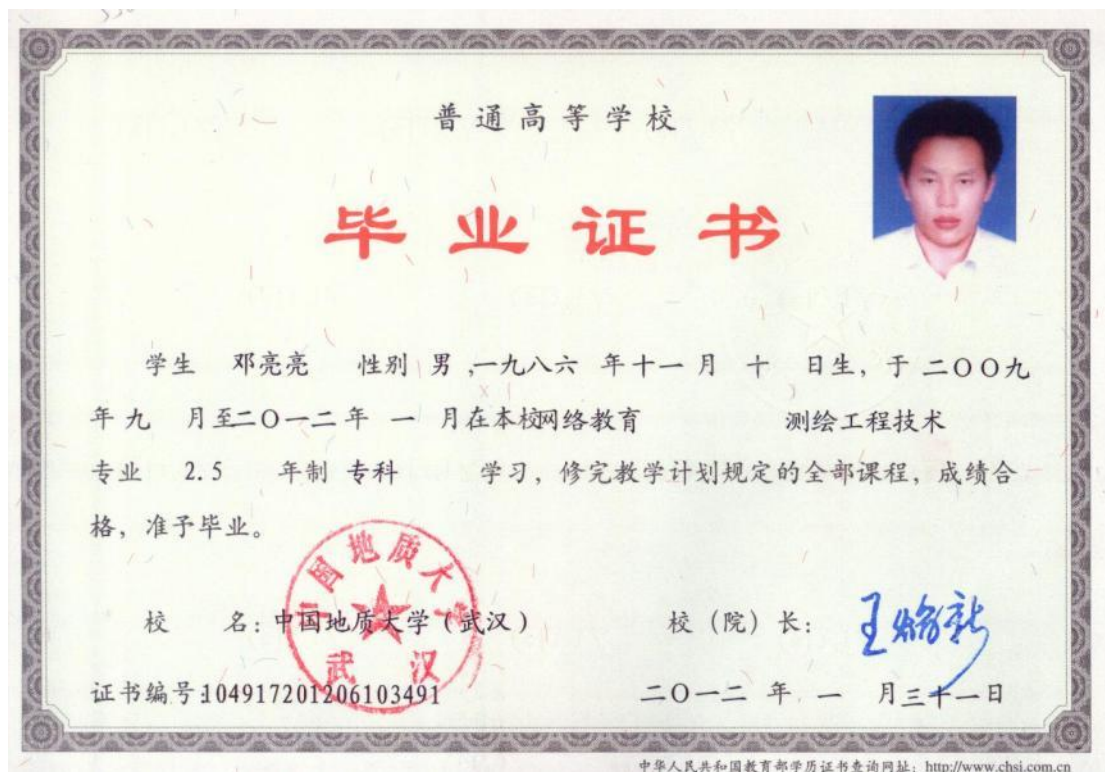 普通高等学校
毕业证书
学生 邓亮亮 性别 男 ,一九八六 年十一月 十 日生，于 二〇〇九
年 九 月至二〇一二年 一 月在本校网络教育 测绘工程技术
专业 2.5 年制 专科 学习，修完教学计划规定的全部课程，成绩合
格，准予毕业。
中国地质大学
武汉
校 名：中国地质大学（武汉） 校（院）长：
证书编号：104917201206103491 二〇一二 年 一 月三十一日
中华人民共和国教育部学历证书查询网址：http://www.chsi.com.cn